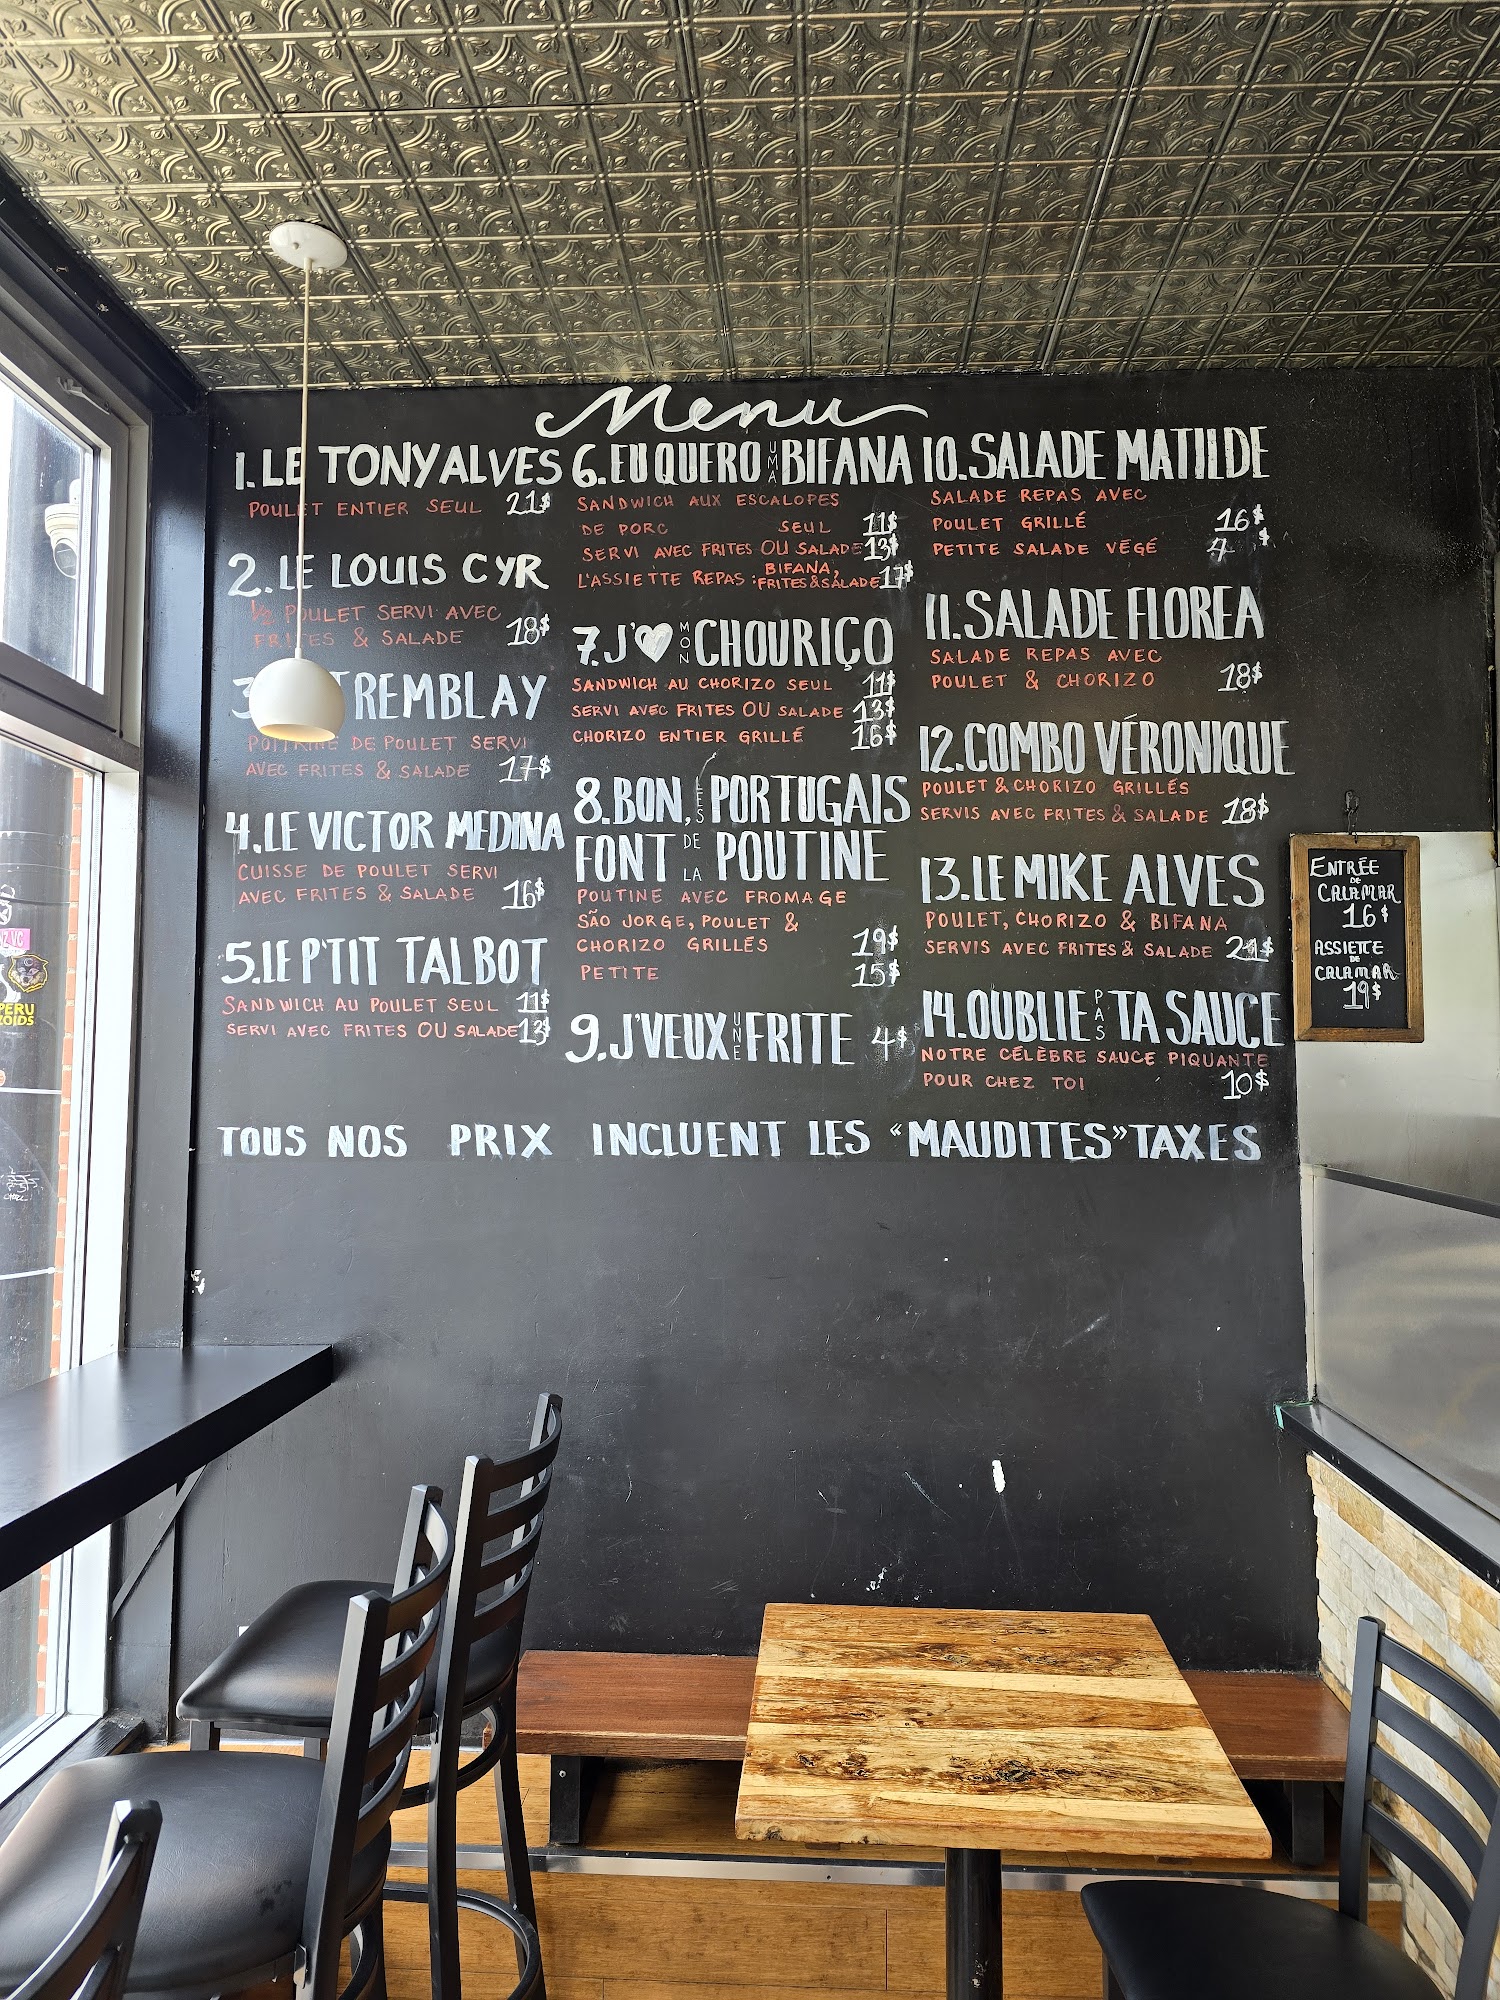 Menu
1. LE TONY ALVES
POULET ENTIER SEUL 21$
2. LE LOUIS CYR
½ POULET SERVI AVEC
FRITES & SALADE 18$
3. TREMBLAY
POITRINE DE POULET SERVI
AVEC FRITES & SALADE 17$
4. LE VICTOR MEDINA
CUISSE DE POULET SERVI
AVEC FRITES & SALADE 16$
5. LE P'TIT TALBOT
SANDWICH AU POULET SEUL 11$
SERVI AVEC FRITES OU SALADE 13$
6. EU QUERO UMA BIFANA
SANDWICH AUX ESCALOPES
DE PORC SEUL 11$
SERVI AVEC FRITES OU SALADE 13$
L'ASSIETTE REPAS: BIFANA, FRITES & SALADE 17$
7. J'♥ MON CHOURIÇO
SANDWICH AU CHORIZO SEUL 11$
SERVI AVEC FRITES OU SALADE 13$
CHORIZO ENTIER GRILLÉ 16$
8. BON, LES PORTUGAIS
FONT DE LA POUTINE
POUTINE AVEC FROMAGE
SÃO JORGE, POULET &
CHORIZO GRILLÉS 19$
PETITE 15$
9. J'VEUX UNE FRITE 4$
10. SALADE MATILDE
SALADE REPAS AVEC
POULET GRILLÉ 16$
PETITE SALADE VÉGÉ 7$
11. SALADE FLOREA
SALADE REPAS AVEC
POULET & CHORIZO 18$
12. COMBO VÉRONIQUE
POULET & CHORIZO GRILLÉS
SERVIS AVEC FRITES & SALADE 18$
13. LE MIKE ALVES
POULET, CHORIZO & BIFANA
SERVIS AVEC FRITES & SALADE 21$
14. OUBLIE PAS TA SAUCE
NOTRE CÉLÈBRE SAUCE PIQUANTE
POUR CHEZ TOI 10$
TOUS NOS PRIX INCLUENT LES «MAUDITES» TAXES
ENTRÉE
DE
CALAMAR
16$
ASSIETTE
DE
CALAMAR
19$
PERU